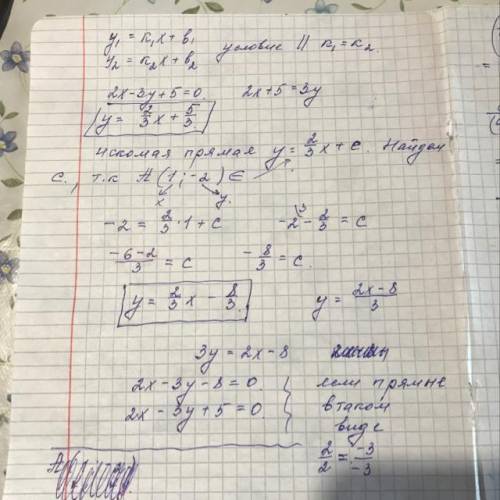 y₁ = k₁x + b₁
y₂ = k₂x + b₂ условие || k₁ = k₂.
2x - 3y + 5 = 0. 2x + 5 = 3y
y = 2/3 x + 5/3.
Искомая прямая y = 2/3 x + c. Найдем
c., т.к A(1; -2) ∈
x y.
-2 = 2/3 · 1 + c -2\3 - 2/3 = c
(-6-2)/3 = c -8/3 = c.
y = 2/3 x - 8/3. y = (2x-8)/3
3y = 2x - 8
2x - 3y - 8 = 0. если прямые
2x - 3y + 5 = 0. в таком
виде
2/2 = -3/-3